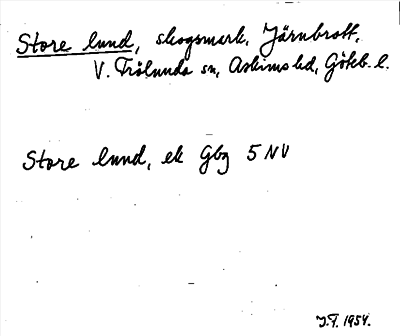 Store lund, skogsmark, Järnbrott,
V. Frölunda sn, Askims hd, Göteb. l.
Store lund, ek Gbg 5 NV
J.F. 1954.